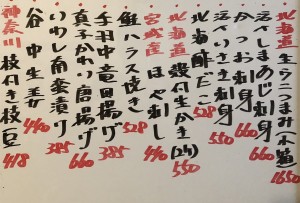 北海道 生うにつまみ(小箱) 1650
活〆しまあじ刺身 660
かつお刺身 660
活〆いさき刺身 550
北海道 殻付生かき(2ケ) 550
北海酢だこ 528
宮城産 ほや刺し 440
鮭ハラス焼き 528
手羽中竜田揚げ 385
真子かれい唐揚げ 660
いわし南蛮漬け 385
谷中生姜 440
神奈川 枝付き枝豆 418